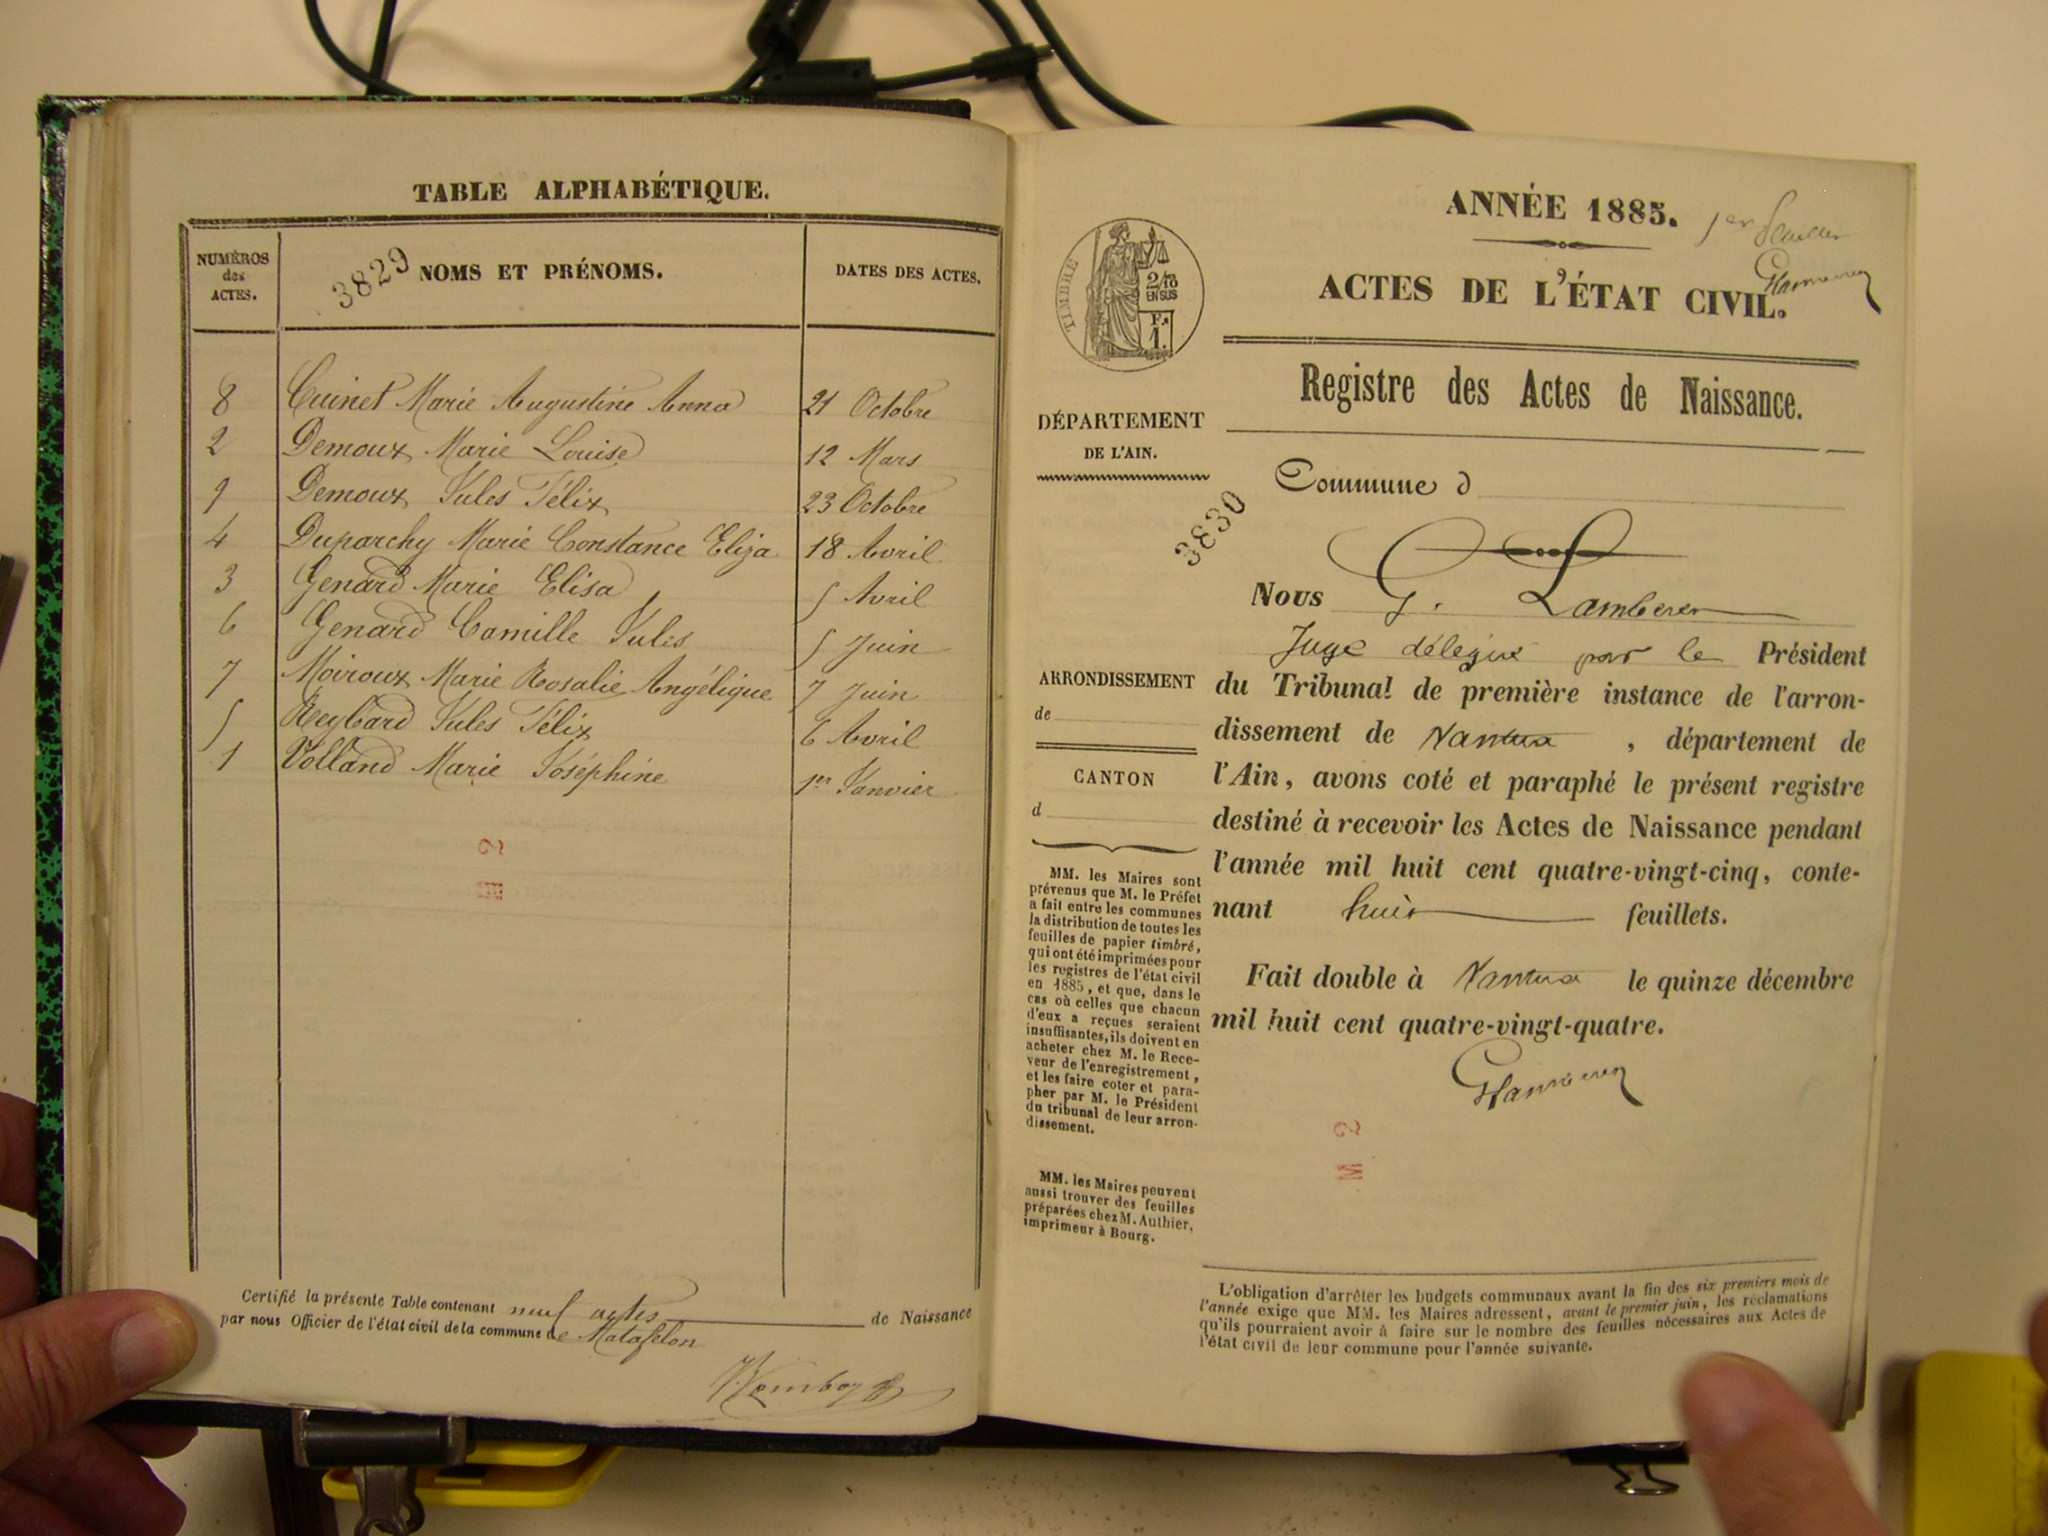 TABLE ALPHABÉTIQUE.
NUMÉROS des ACTES.
3829
NOMS ET PRÉNOMS.
DATES DES ACTES.
8 Cuinet Marie Augustine Anna 21 Octobre
2 Demoux Marie Louise 12 Mars
9 Demoux Jules Félix 23 Octobre
4 Duparchy Marie Constance Eliza 18 Avril
3 Genard Marie Elisa 5 Avril
6 Genard Camille Jules 5 Juin
7 Moiroux Marie Rosalie Angélique 7 Juin
5 Reybard Jules Félix 6 Avril
1 Volland Marie Joséphine 1er Janvier
Certifié la présente Table contenant neuf actes de Naissance
par nous Officier de l'état civil de la commune de Matafelon
ANNÉE 1885.
1er feuillet
ACTES DE L'ÉTAT CIVIL.
TIMBRE
2/10
EN SUS
Fc
1.
Registre des Actes de Naissance.
DÉPARTEMENT
DE L'AIN.
Commune d
3830
Nous G. Lamberer
Juge délégué par le Président
du Tribunal de première instance de l'arron-
dissement de Nantua , département de
l'Ain, avons coté et paraphé le présent registre
destiné à recevoir les Actes de Naissance pendant
l'année mil huit cent quatre-vingt-cinq, conte-
nant huit feuillets.
Fait double à Nantua le quinze décembre
mil huit cent quatre-vingt-quatre.
ARRONDISSEMENT
de
CANTON
d
MM. les Maires sont
prévenus que M. le Préfet
a fait entre les communes
la distribution de toutes les
feuilles de papier timbré,
qui ont été imprimées pour
les registres de l'état civil
en 1885, et que, dans le
cas où celles que chacun
d'eux a reçues seraient
insuffisantes, ils doivent en
acheter chez M. le Rece-
veur de l'enregistrement,
et les faire coter et para-
pher par M. le Président
du tribunal de leur arron-
dissement.
MM. les Maires peuvent
aussi trouver des feuilles
préparées chez M. Authier,
imprimeur à Bourg.
L'obligation d'arrêter les budgets communaux avant la fin des six premiers mois de
l'année exige que MM. les Maires adressent, avant le premier juin, les réclamations
qu'ils pourraient avoir à faire sur le nombre des feuilles nécessaires aux Actes de
l'état civil de leur commune pour l'année suivante.